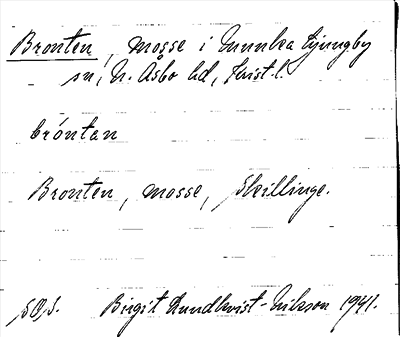 Bronten, mosse i Munka Ljungby
sn, N. Åsbo hd, Krist. l.
bróntan
Bronten, mosse, Skillinge.
SOS. Birgit Lundkvist-Nilsson 1941.